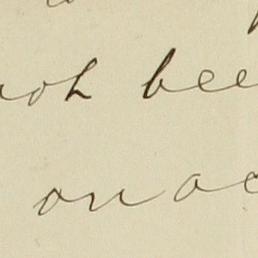 not bee
on ac